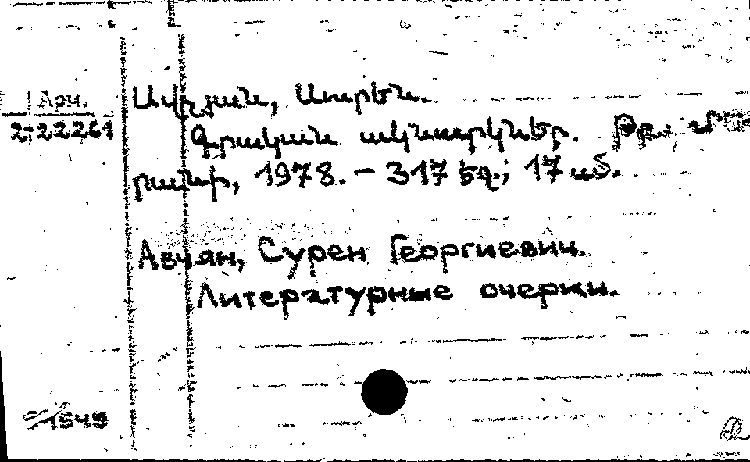 Арм.
2-22261
Ավչյան, Սուրեն.
Գրական ակնարկներ. Թբ.,
րանի, 1978. – 317 էջ.; 17 սմ.
Авчян, Сурен Георгиевич.
Литературные очерки.
1549